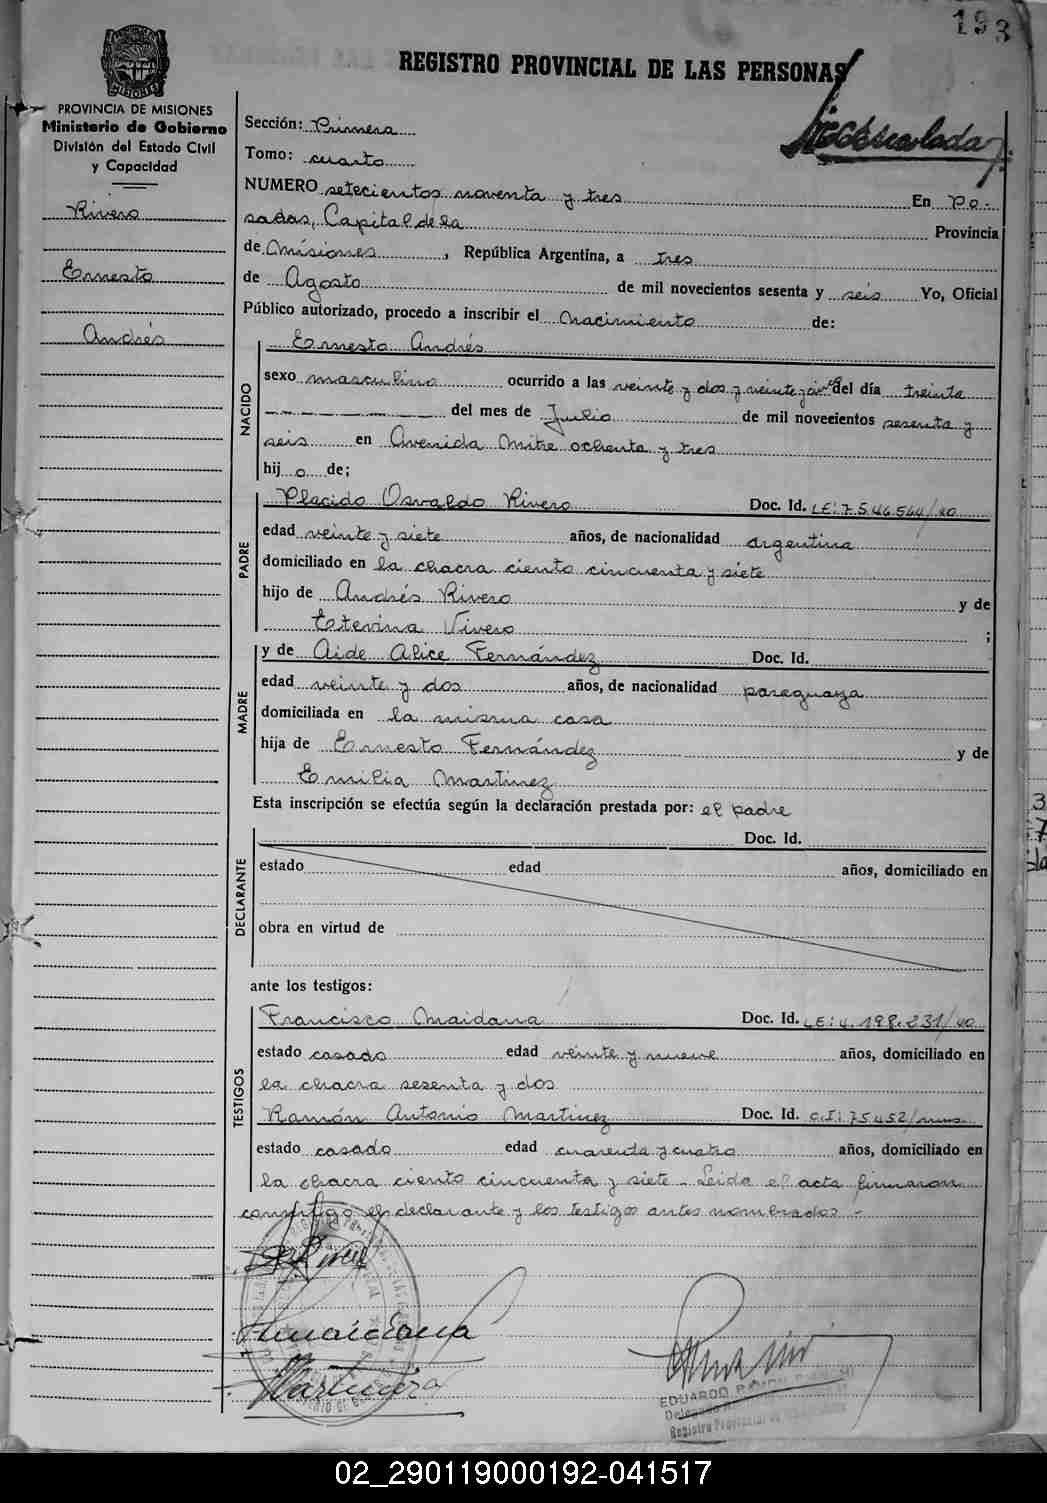 193
REGISTRO PROVINCIAL DE LAS PERSONAS
MISIONES
PROVINCIA DE MISIONES
Ministerio de Gobierno
División del Estado Civil
y Capacidad
Rivero
Ernesto
Andrés
Sección: Primera
Tomo: cuarto
NUMERO setecientos noventa y tres En Po-
sadas, Capital de la Provincia
de Misiones, República Argentina, a tres
de Agosto de mil novecientos sesenta y seis Yo, Oficial
Público autorizado, procedo a inscribir el nacimiento de:
NACIDO
Ernesto Andrés
sexo masculino ocurrido a las veinte y dos y veinte y del día treinta
del mes de Julio de mil novecientos sesenta y
seis en Avenida Mitre ochenta y tres
hijo de;
PADRE
Placido Osvaldo Rivero Doc. Id. LE: 7.546.564/40
edad veinte y siete años, de nacionalidad argentina
domiciliado en la chacra ciento cincuenta y siete
hijo de Andrés Rivero y de
Estevina Vivero ;
MADRE
y de Aide Alice Fernández Doc. Id.
edad veinte y dos años, de nacionalidad paraguaya
domiciliada en la misma casa
hija de Ernesto Fernández y de
Emilia Martinez
Esta inscripción se efectúa según la declaración prestada por: el padre
DECLARANTE
Doc. Id.
estado edad años, domiciliado en
obra en virtud de
ante los testigos:
TESTIGOS
Francisco Maidana Doc. Id. LE: 4.198.231/40
estado casado edad veinte y nueve años, domiciliado en
la chacra sesenta y dos
Ramón Antonio Martinez Doc. Id. C.I: 75452/mnes
estado casado edad cuarenta y cuatro años, domiciliado en
la chacra ciento cincuenta y siete - Leida el acta firmaron
conmigo el declarante y los testigos antes nombrados -
EDUARDO RAMON
Registro Provincial de
02_290119000192-041517